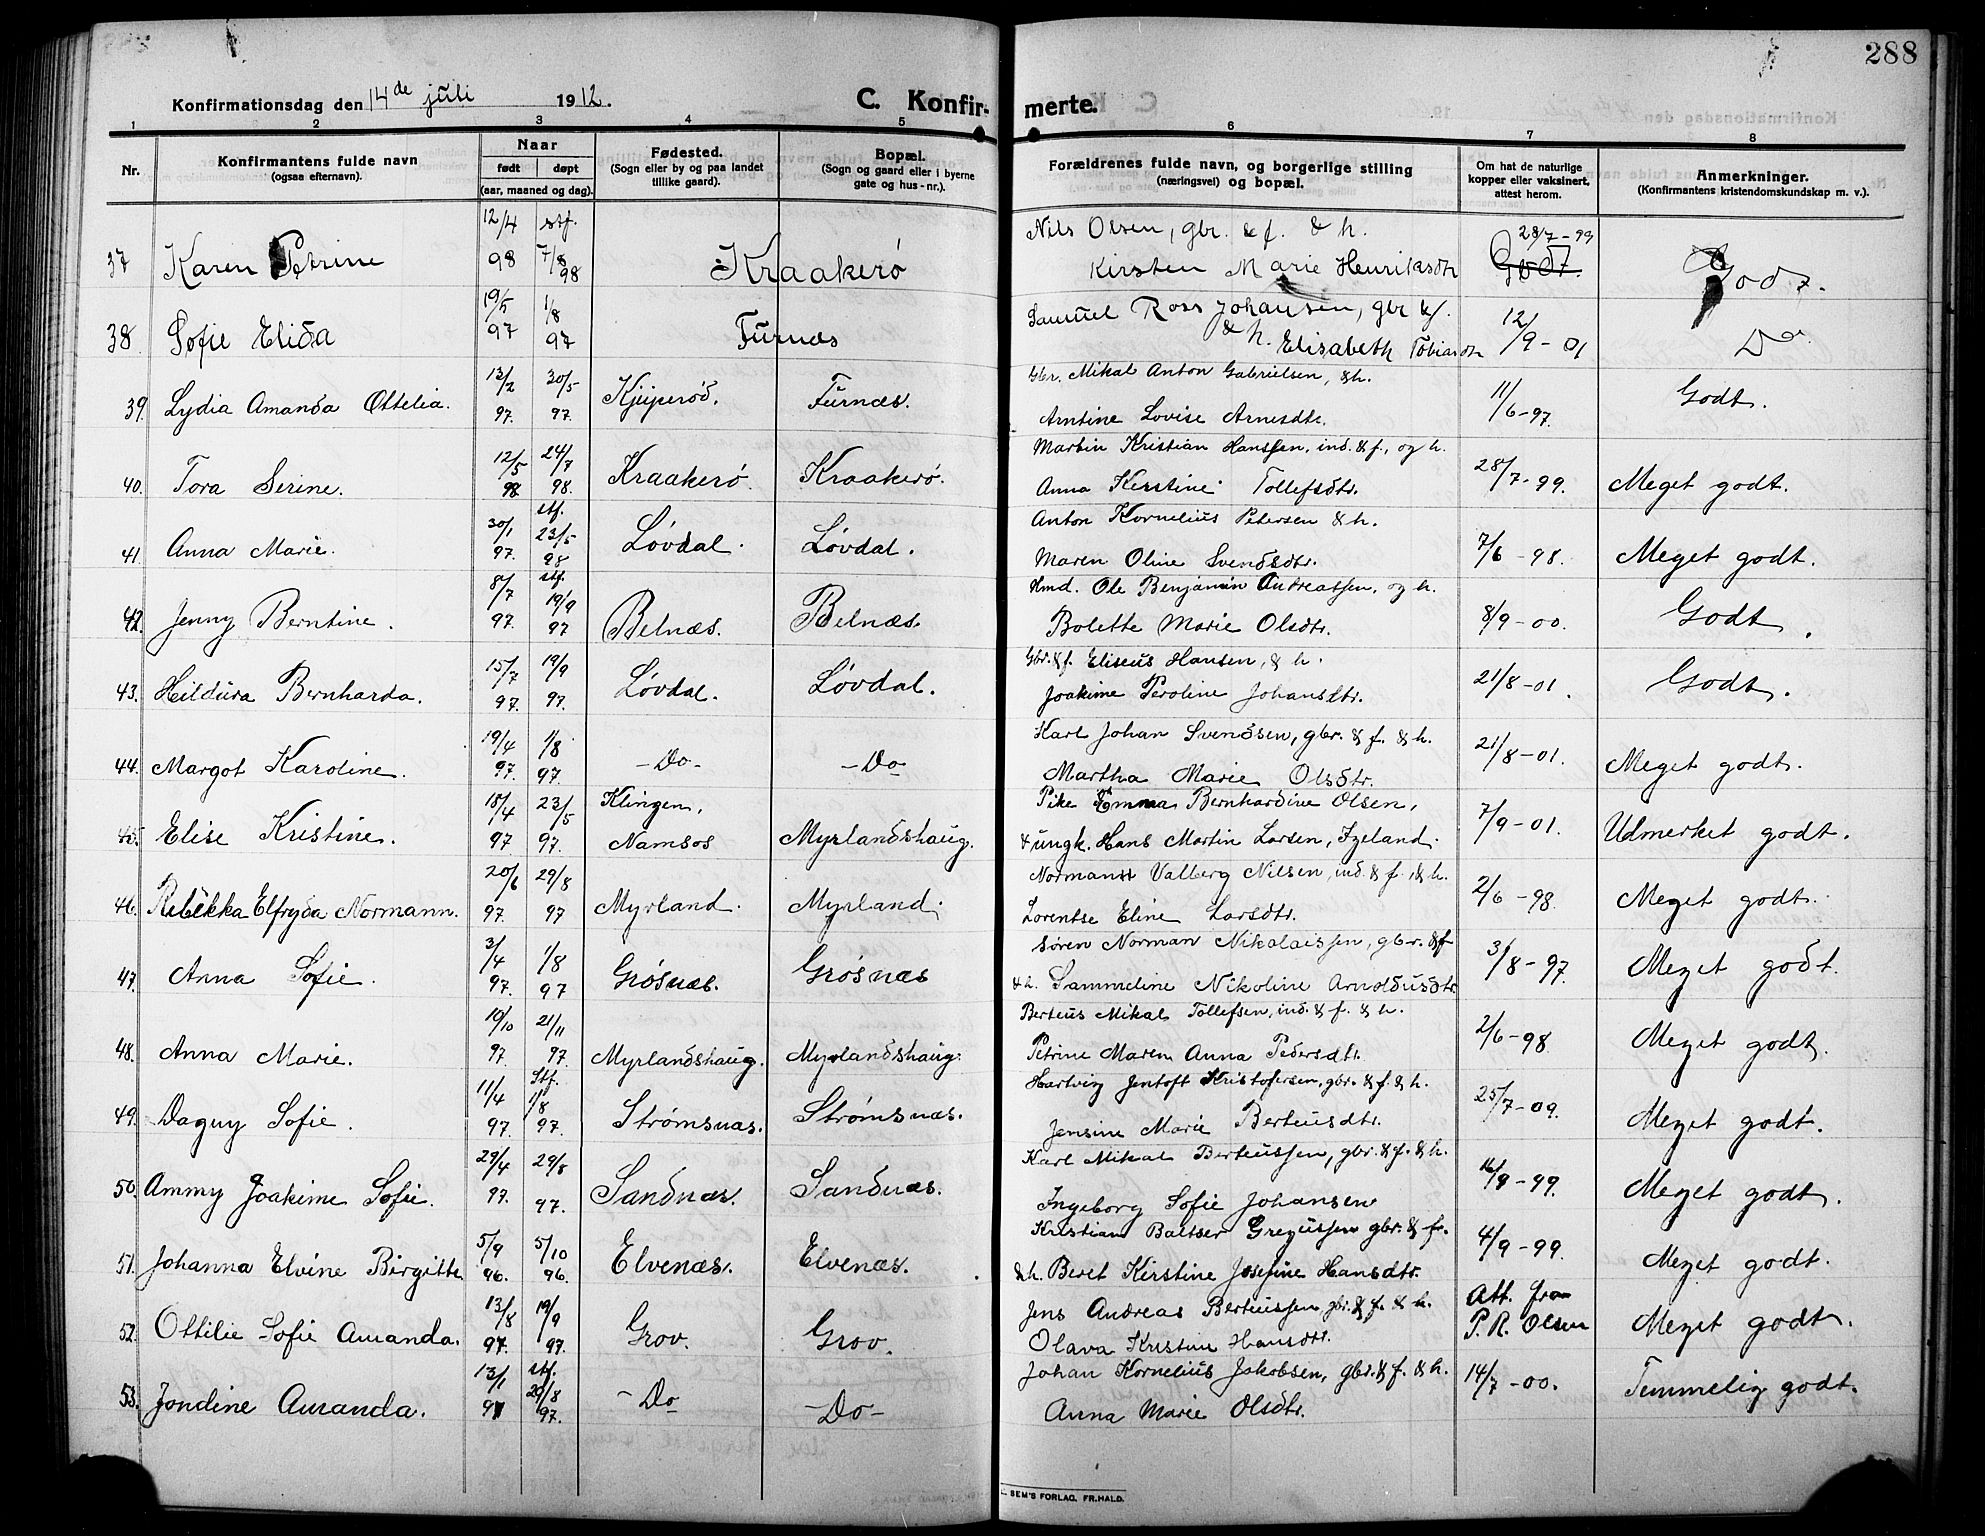 288
Konfirmationsdag den 14de juli 1912.
C. Konfirmerte.
1 2 3 4 5 6 7 8
Nr.
Konfirmantens fulde navn
(ogsaa efternavn).
Naar
født døpt
(aar, maaned og dag).
Fødested.
(Sogn eller by og paa landet
tillike gaard).
Bopæl.
(Sogn og gaard eller i byerne
gate og hus-nr.).
Forældrenes fulde navn, og borgerlige stilling
(næringsvei) og bopæl.
Om hat de naturlige
kopper eller vaksinert,
attest herom.
Anmerkninger.
(Konfirmantens kristendomskundskap m. v.).
12/4 stf. Nils Olsen, gbr. & f. & h. 28/7-99
37 Karen Petrine 98 7/8 98 Kraakerø Kirsten Marie Henriksdtr Godt. Godt.
19/5 1/8 Samuel Ross Johansen, gbr & f.
38. Sofie Elida 97 97 Furnæs & h. Elisabeth Tobiasdtr 12/9-01 Do.
13/2 30/5 Gbr. Mikal Anton Gabrielsen, & h.
39. Lydia Amanda Ottelia. 97. 97. Kjiperød. Furnæs. Arntine Lovise Arnesdtr. 11/6-97. Godt.
12/5 24/7 Martin Kristian Hanssen, ind. & f., og h.
40. Tora Serine. 98 98. Kraakerø. Kraakerø. Anna Kirstine Tollefsdtr. 28/7-99. Meget godt.
30/1 stf. 23/5 Anton Kornelius Petersen & h.
41. Anna Marie. 97. 98 Løvdal. Løvdal. Maren Oline Svendsdtr. 7/6-98. Meget godt.
8/7 stf. 19/9 Hmd. Ole Benjamin Andreassen, og h.
42. Jenny Berntine. 97. 97 Belnæs. Belnæs. Bolette Marie Olsdtr. 8/9-00. Godt.
15/7 19/9 Gbr. & f. Eliseus Hansen, & h.
43. Hildura Bernharda. 97. 97. Løvdal. Løvdal. Joakime Peroline Johansdtr. 21/8-01. Godt.
19/4 1/8 Karl Johan Svendsen, gbr. & f. & h.
44. Margot Karoline. 97. 97. -Do- -Do- Martha Marie Olsdtr. 21/8-01. Meget godt.
18/4 23/5 Klingen, Pike Emma Bernhardine Olsen,
45. Elise Kristine. 97 97. Namsos Myrlandshaug. & ungk. Hans Martin Larsen, Izeland. 7/9-01. Udmerket godt.
20/6 29/8 Normann Valberg Nilsen, ind. & f., & h.
46. Rebekka Elfryda Normann. 97. 97 Myrland. Myrland. Lorentse Eline Larsdtr. 2/6-98. Meget godt.
3/4 1/8 Søren Norman Nikolaissen, gbr. & f
47. Anna Sofie. 97. 97 Grøsnæs. Grøsnæs & h. Sammeline Nikoline Arnoldusdtr. 3/8-97. Meget godt.
10/10 21/11 Berteus Mikal Tollefsen, ind. & f. & h.
48. Anna Marie. 97 97. Myrlandshaug. Myrlandshaug. Petrine Maren Anna Pedersdtr. 2/6-98 Meget godt.
11/4 Stf. 1/8 Hartvig Jentoft Kristofersen, gbr. & f. & h.
49. Dagny Sofie. 97. 97. Strømsnæs. Strømsnæs. Jensine Marie Berteusdtr. 25/7-09. Meget godt.
29/4 29/8 Karl Mikal Berteussen, gbr. & f. & h.
50. Ammy Joakime Sofie. 97. 97. Sandnæs. Sandnæs. Ingeborg Sofie Johansen 16/9-99. Meget godt.
5/9 5/10 Kristian Baltser Greyussen gbr. & f.
51. Johanna Elvine Birgitte 96. 96. Elvenæs. Elvenæs. & h. Beret Kirstine Josefine Hansdtr. 4/9-99. Meget godt.
13/8 19/9 Jens Andreas Berteussen, gbr. & f. & h. Att. fra
52. Ottilie Sofie Amanda. 97. 97. Grov. Grov. Olava Kristine Hansdtr. P. R. Olsen Meget godt.
13/1 stf. 29/8 Johan Kornelius Jakobsen, gbr. & f. & h.
53. Jondine Amanda. 97 97. -Do -Do- Anna Marie Olsdtr. 14/7-00. Temmelig godt.
SEM'S FORLAG, FR.HALD.